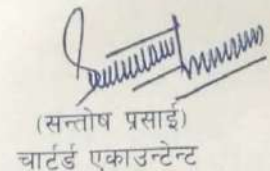 (सन्तोष प्रसाई)
चार्टर्ड एकाउन्टेन्ट